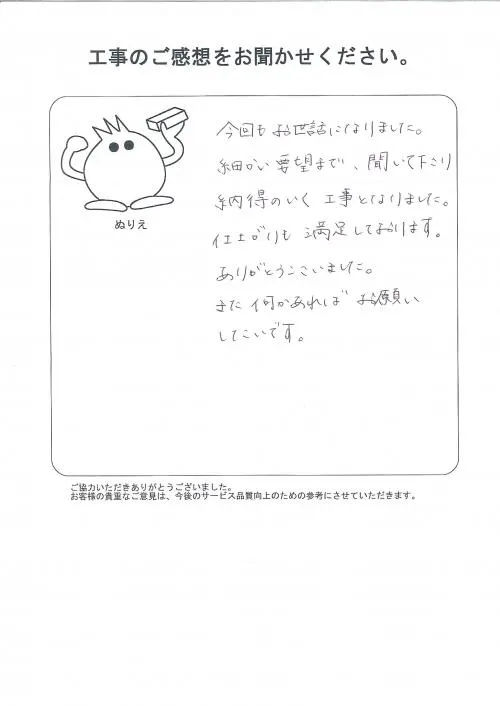 工事のご感想をお聞かせください。
今回もお世話になりました。
細かい要望まで、聞いて下さり
納得のいく工事となりました。
仕上がりも満足しております。
ありがとうございました。
また何かあればお願い
したいです。
ぬりえ
ご協力いただきありがとうございました。
お客様の貴重なご意見は、今後のサービス品質向上のための参考にさせていただきます。